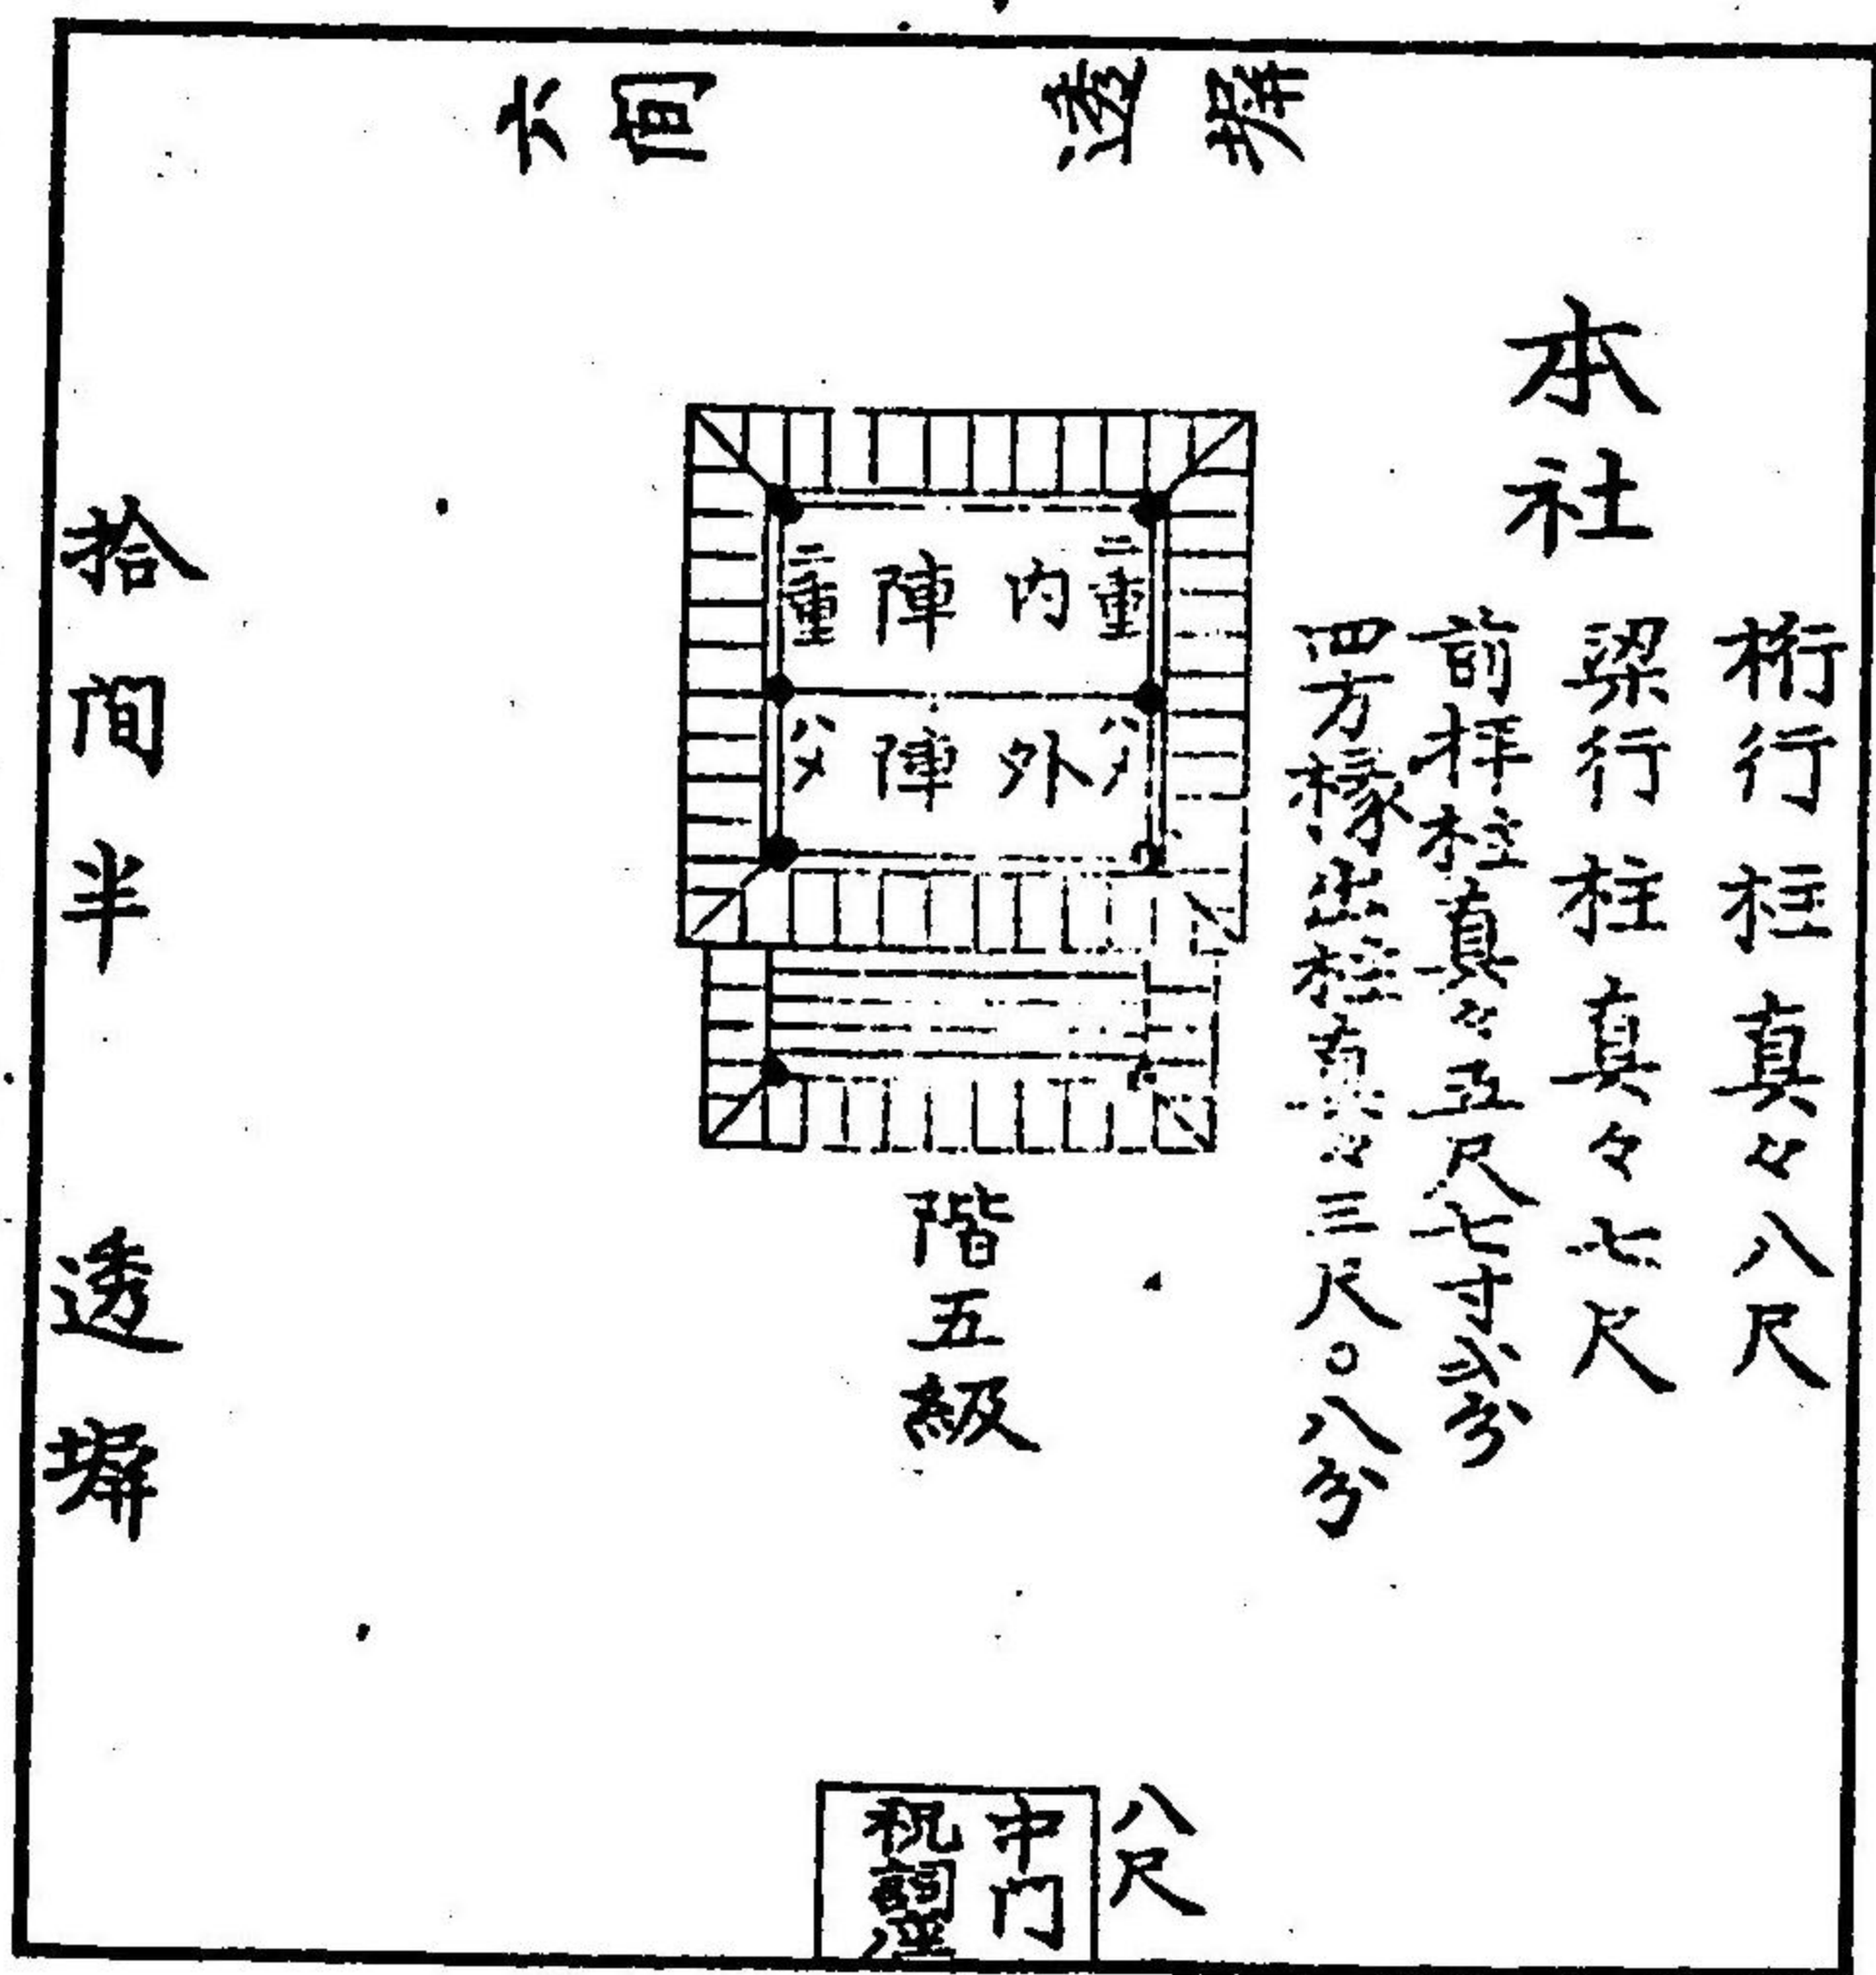 透塀
六間
本社
桁行柱真々八尺
梁行柱真々七尺
前拝柱真々五尺七寸弐分
四方椽出柱真々三尺〇八分
二重
内陣
二重
八〆
外陣
八〆
階五級
拾間半
透塀
八尺
中门
祝詞座